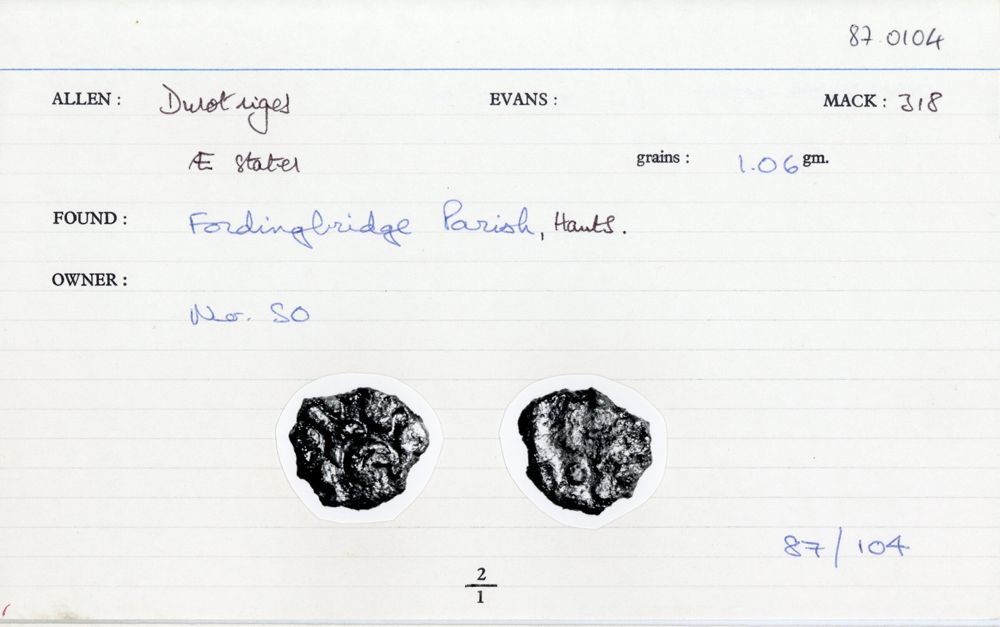 87.0104
ALLEN : Durotriges EVANS : MACK : 318
Æ Stater grains : 1.06 gm.
FOUND : Fordingbridge Parish, Hants.
OWNER :
No. 50
87/104
2
1